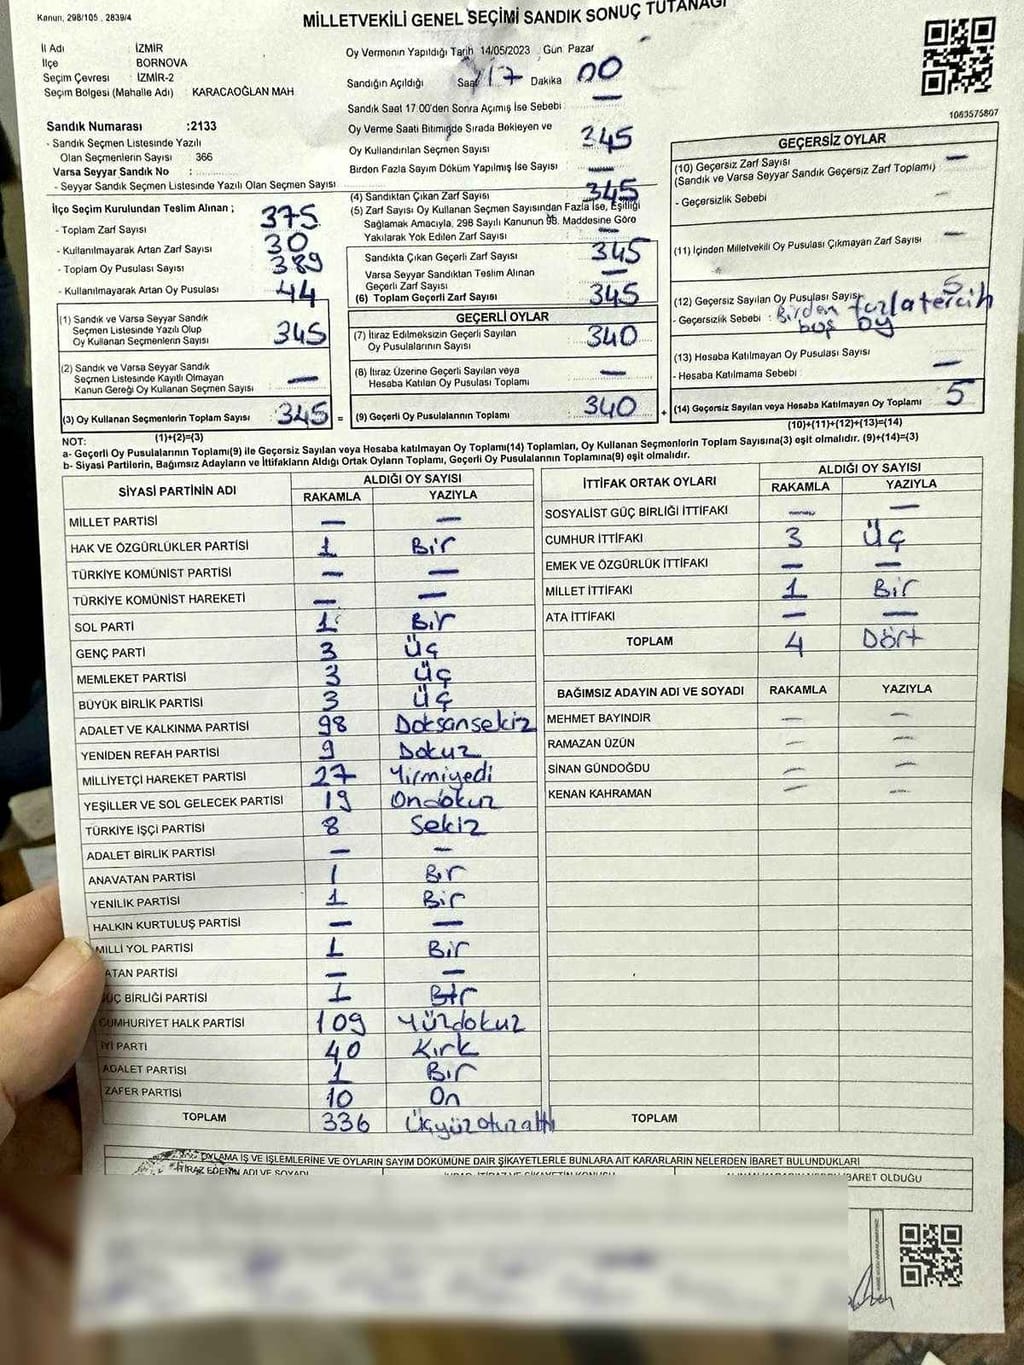 Kanun, 298/105, 2839/4
MİLLETVEKİLİ GENEL SEÇİMİ SANDIK SONUÇ TUTANAĞI
İl Adı İZMİR
İlçe BORNOVA
Seçim Çevresi : İZMİR-2
Seçim Bölgesi (Mahalle Adı) : KARACAOĞLAN MAH
Sandık Numarası :2133
- Sandık Seçmen Listesinde Yazılı
Olan Seçmenlerin Sayısı 366
Varsa Seyyar Sandık No :
- Seyyar Sandık Seçmen Listesinde Yazılı Olan Seçmen Sayısı
İlçe Seçim Kurulundan Teslim Alınan ;
- Toplam Zarf Sayısı 375
- Kullanılmayarak Artan Zarf Sayısı 30
- Toplam Oy Pusulası Sayısı 389
- Kullanılmayarak Artan Oy Pusulası 44
(1) Sandık ve Varsa Seyyar Sandık
Seçmen Listesinde Yazılı Olup
Oy Kullanan Seçmenlerin Sayısı 345
(2) Sandık ve Varsa Seyyar Sandık
Seçmen Listesinde Kayıtlı Olmayan
Kanun Gereği Oy Kullanan Seçmen Sayısı —
(3) Oy Kullanan Seçmenlerin Toplam Sayısı 345 =
(1)+(2)=(3)
Oy Vermenin Yapıldığı Tarih 14/05/2023 , Gün Pazar
Sandığın Açıldığı Saat 17 Dakika 00
Sandık Saat 17.00'den Sonra Açımış İse Sebebi —
Oy Verme Saati Bitiminde Sırada Bekleyen ve
Oy Kullandırılan Seçmen Sayısı 345
Birden Fazla Sayım Döküm Yapılmış İse Sayısı —
(4) Sandıktan Çıkan Zarf Sayısı 345
(5) Zarf Sayısı Oy Kullanan Seçmen Sayısından Fazla İse, Eşitliği
Sağlamak Amacıyla, 298 Sayılı Kanunun 98. Maddesine Göre
Yakılarak Yok Edilen Zarf Sayısı —
Sandıkta Çıkan Geçerli Zarf Sayısı 345
Varsa Seyyar Sandıktan Teslim Alınan
Geçerli Zarf Sayısı —
(6) Toplam Geçerli Zarf Sayısı 345
GEÇERLİ OYLAR
(7) İtiraz Edilmeksizin Geçerli Sayılan
Oy Pusulalarının Sayısı 340
(8) İtiraz Üzerine Geçerli Sayılan veya
Hesaba Katılan Oy Pusulası Toplamı —
(9) Geçerli Oy Pusulalarının Toplamı 340 +
1063575807
GEÇERSİZ OYLAR
(10) Geçersiz Zarf Sayısı —
(Sandık ve Varsa Seyyar Sandık Geçersiz Zarf Toplamı)
- Geçersizlik Sebebi —
(11) İçinden Milletvekili Oy Pusulası Çıkmayan Zarf Sayısı —
(12) Geçersiz Sayılan Oy Pusulası Sayısı 5
- Geçersizlik Sebebi : Birden fazla tercih
boş oy
(13) Hesaba Katılmayan Oy Pusulası Sayısı —
- Hesaba Katılmama Sebebi
(14) Geçersiz Sayılan veya Hesaba Katılmayan Oy Toplamı 5
(10)+(11)+(12)+(13)=(14)
NOT:
a- Geçerli Oy Pusulalarının Toplamı(9) ile Geçersiz Sayılan veya Hesaba katılmayan Oy Toplamı(14) Toplamları, Oy Kullanan Seçmenlerin Toplam Sayısına(3) eşit olmalıdır. (9)+(14)=(3)
b- Siyasi Partilerin, Bağımsız Adayların ve İttifakların Aldığı Ortak Oyların Toplamı, Geçerli Oy Pusulalarının Toplamına(9) eşit olmalıdır.
SİYASİ PARTİNİN ADI ALDIĞI OY SAYISI
RAKAMLA YAZIYLA
MİLLET PARTİSİ — —
HAK VE ÖZGÜRLÜKLER PARTİSİ 1 Bir
TÜRKİYE KOMÜNİST PARTİSİ — —
TÜRKİYE KOMÜNİST HAREKETİ — —
SOL PARTİ 1 Bir
GENÇ PARTİ 3 Üç
MEMLEKET PARTİSİ 3 Üç
BÜYÜK BİRLİK PARTİSİ 3 Üç
ADALET VE KALKINMA PARTİSİ 98 Doksansekiz
YENİDEN REFAH PARTİSİ 9 Dokuz
MİLLİYETÇİ HAREKET PARTİSİ 27 Yirmiyedi
YEŞİLLER VE SOL GELECEK PARTİSİ 19 Ondokuz
TÜRKİYE İŞÇİ PARTİSİ 8 Sekiz
ADALET BİRLİK PARTİSİ — —
ANAVATAN PARTİSİ 1 Bir
YENİLİK PARTİSİ 1 Bir
HALKIN KURTULUŞ PARTİSİ — —
MİLLİ YOL PARTİSİ 1 Bir
ATAN PARTİSİ — —
ÜÇ BİRLİĞİ PARTİSİ 1 Bir
CUMHURİYET HALK PARTİSİ 109 Yüzdokuz
İYİ PARTİ 40 Kırk
ADALET PARTİSİ 1 Bir
ZAFER PARTİSİ 10 On
TOPLAM 336 Üçyüzotuzaltı
İTTİFAK ORTAK OYLARI ALDIĞI OY SAYISI
RAKAMLA YAZIYLA
SOSYALİST GÜÇ BİRLİĞİ İTTİFAKI — —
CUMHUR İTTİFAKI 3 Üç
EMEK VE ÖZGÜRLÜK İTTİFAKI — —
MİLLET İTTİFAKI 1 Bir
ATA İTTİFAKI — —
TOPLAM 4 Dört
BAĞIMSIZ ADAYIN ADI VE SOYADI RAKAMLA YAZIYLA
MEHMET BAYINDIR — —
RAMAZAN ÜZÜN — —
SİNAN GÜNDOĞDU — —
KENAN KAHRAMAN — —
TOPLAM
OYLAMA İŞ VE İŞLEMLERİNE VE OYLARIN SAYIM DÖKÜMÜNE DAİR ŞİKAYETLERLE BUNLARA AİT KARARLARIN NELERDEN İBARET BULUNDUKLARI
İTİRAZ EDENİN ADI VE SOYADI
İBARET OLDUĞU